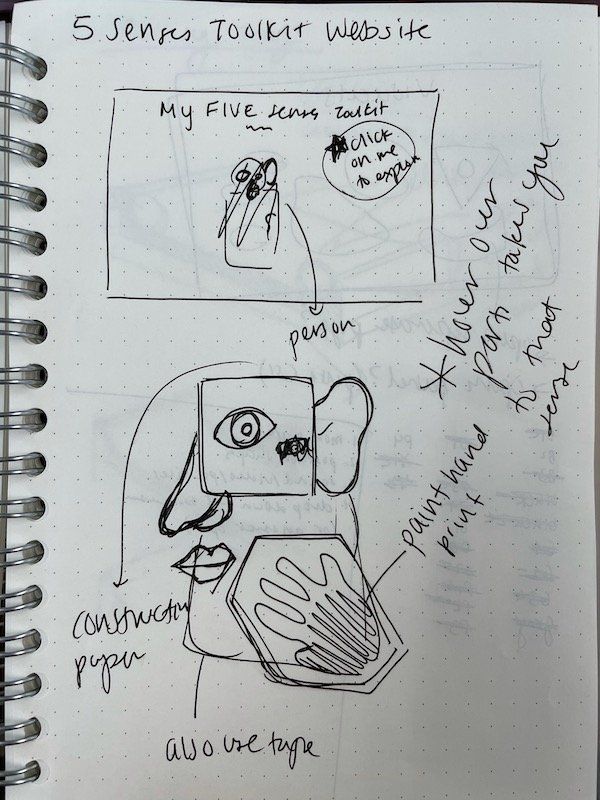 5 Senses Toolkit Website
My FIVE senses toolkit
click
on me
to explore
person
* hover over
part takes you
to that
sense
paint hand
print
construction
paper
also use tape